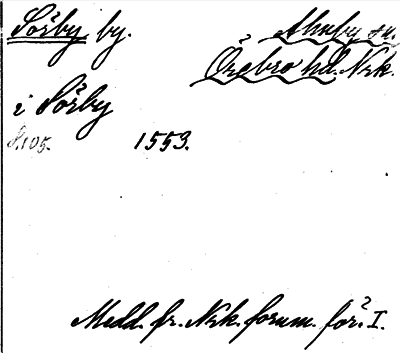 Sörby by. Almby sn.
Örebro hd. Nrk.
i Sörby
S. 105. 1553.
Medd. fr. Nrk. fornm. för. I.